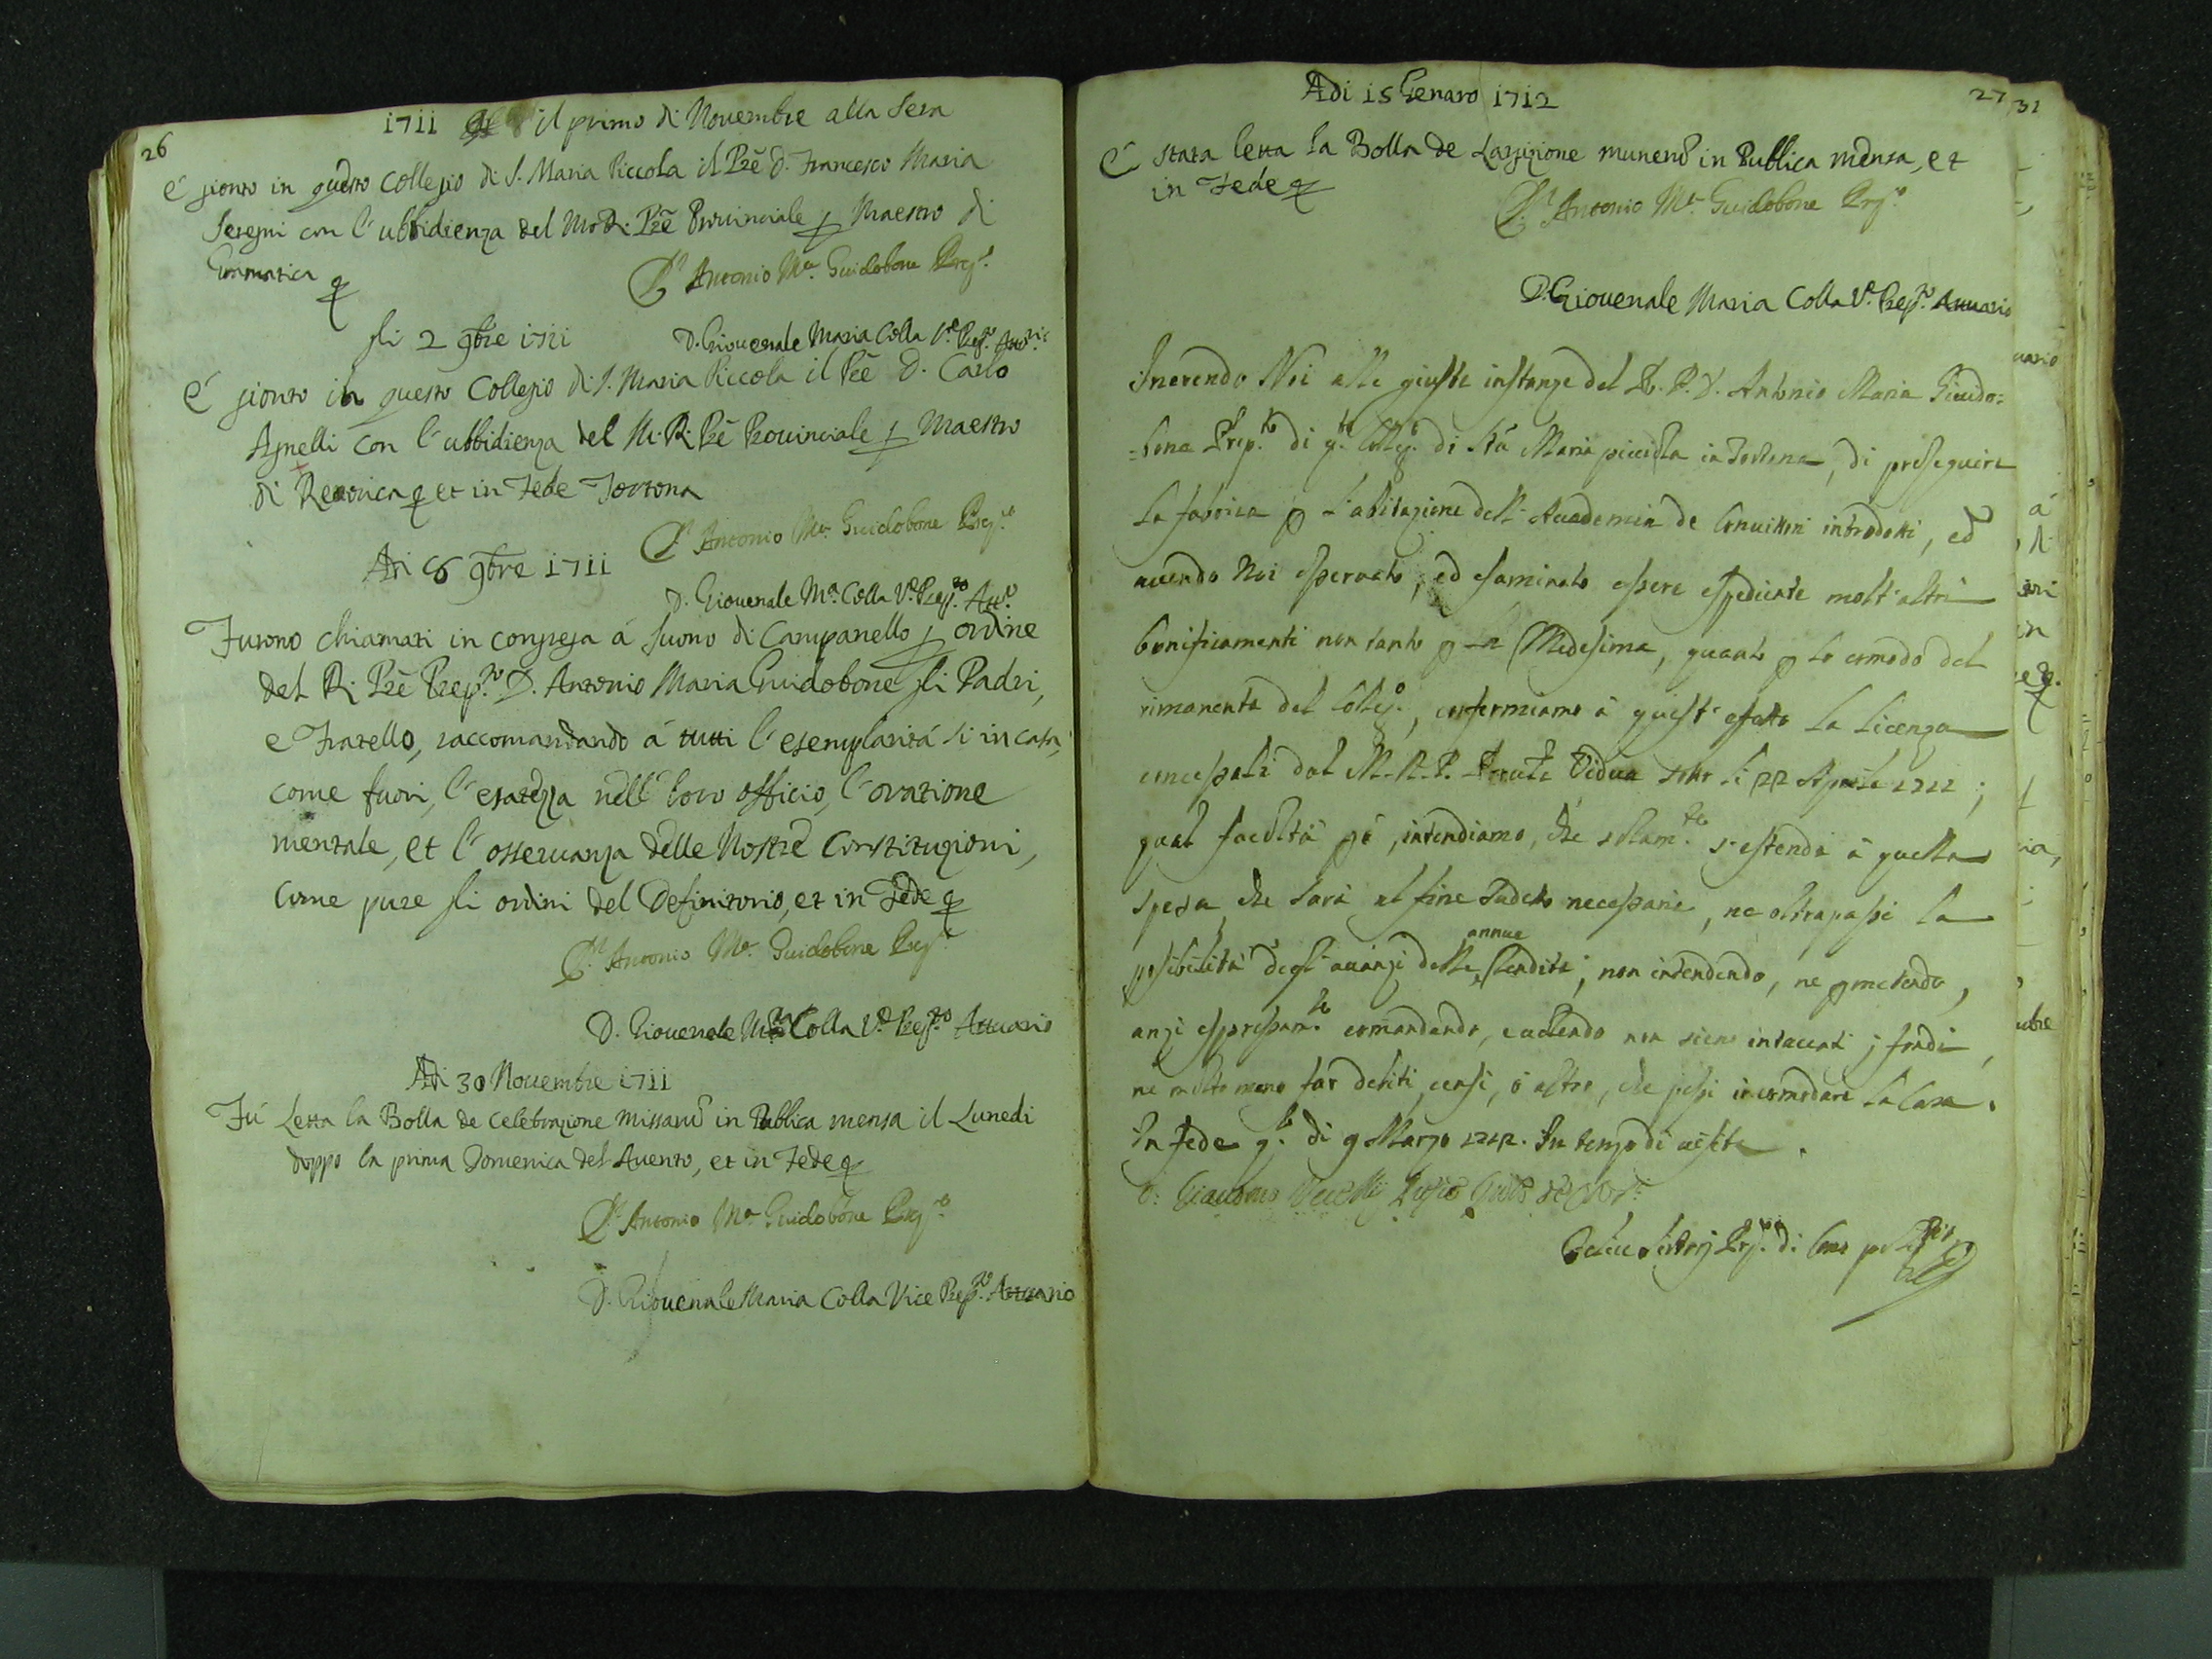 26
1711 il primo di Nouembre alla Sera
É gionto in questo Collegio di S. Maria Piccola il Prẽ D. Francesco Maria
Seregni con l'ubbidienza del M. R. Prẽ Prouinciale p Maestro di
Gramatica
D. Antonio Ma. Guidobone Prepto.
D. Giouenale Maria Colla Ve. Prepto. Attrio
gli 2 9bre 1711
É gionto in questo Collegio di S. Maria Piccola il Prẽ D. Carlo
Agnelli con l'ubbidienza del M. R. Prẽ Prouinciale p Maestro
di Retorica et in Fede Tortona
D. Antonio Ma. Guidobone Prepto.
Adi 6 9bre 1711
D. Giouenale Ma. Colla Ve. Prepto. Atto.
Furono chiamati in congrega á suono di Campanello p ordine
del R. Prẽ Prepto. D. Antonio Maria Guidobone gli Padri,
e Fratello, raccomandando á tutti l'esemplaritá si in casa,
come fuori, l'esatezza nell' loro officio, l'oratione
mentale, et l'osseruanza delle Nostre Constituzioni,
Come pure gli ordini del Definitorio, et in Fede
D. Antonio Ma. Guidobone Prepto.
D. Giouenale Ma. Colla Ve. Prepto. Attuario
Adi 30 Nouembre 1711
Fú Letta la Bolla de Celebrazione Missarũ in Publica mensa il Lunedi
doppo la prima Domenica del Auento, et in Fede
D. Antonio Ma. Guidobone Prepto.
D. Giouenale Maria Colla Vice Prepto. Attuario
27
31
Adi 15 Genaro 1712
É stata letta la Bolla de Largizione munerũ in Publica mensa, et
in Fede
D. Antonio Ma. Guidobone Prepto.
D. Giouenale Maria Colla Ve. Prepto. Attuario
Inerendo Noi alle giuste instanze del R. P. D. Antonio Maria Guido=
=bone Prepto. di qto. Collego. di Sta Maria picciola in Tortona, di proseguire
la fabrica p l'abitazione dell' Accademia de Conuittori introdotti, ed
auendo Noi osseruato, ed esaminato essere espediente molt'altri
bonificamenti non tanto p la Medesima, quanto p lo comodo del
rimanente del Collego., confermiamo á quest'effetto la licenza
concessali dal M. R. P. Vidua sotto li 22 Aprile 1711;
qual facoltá però, intendiamo, che solamte. s'estenda á quella
spesa, che sará al fine sudetto necessaria, ne oltrapassi la
possibilitá degl'auanzi delle annue Rendite; non intendendo, ne pmetendo,
anzi espressamte. comandando, non sieno intaccati i fondi,
ne molto meno far debiti, censi, ó altro, che possi incomodare la Casa.
In fede qto. di 9 Marzo 1712. In tempo di uisita.
D. Giacomo